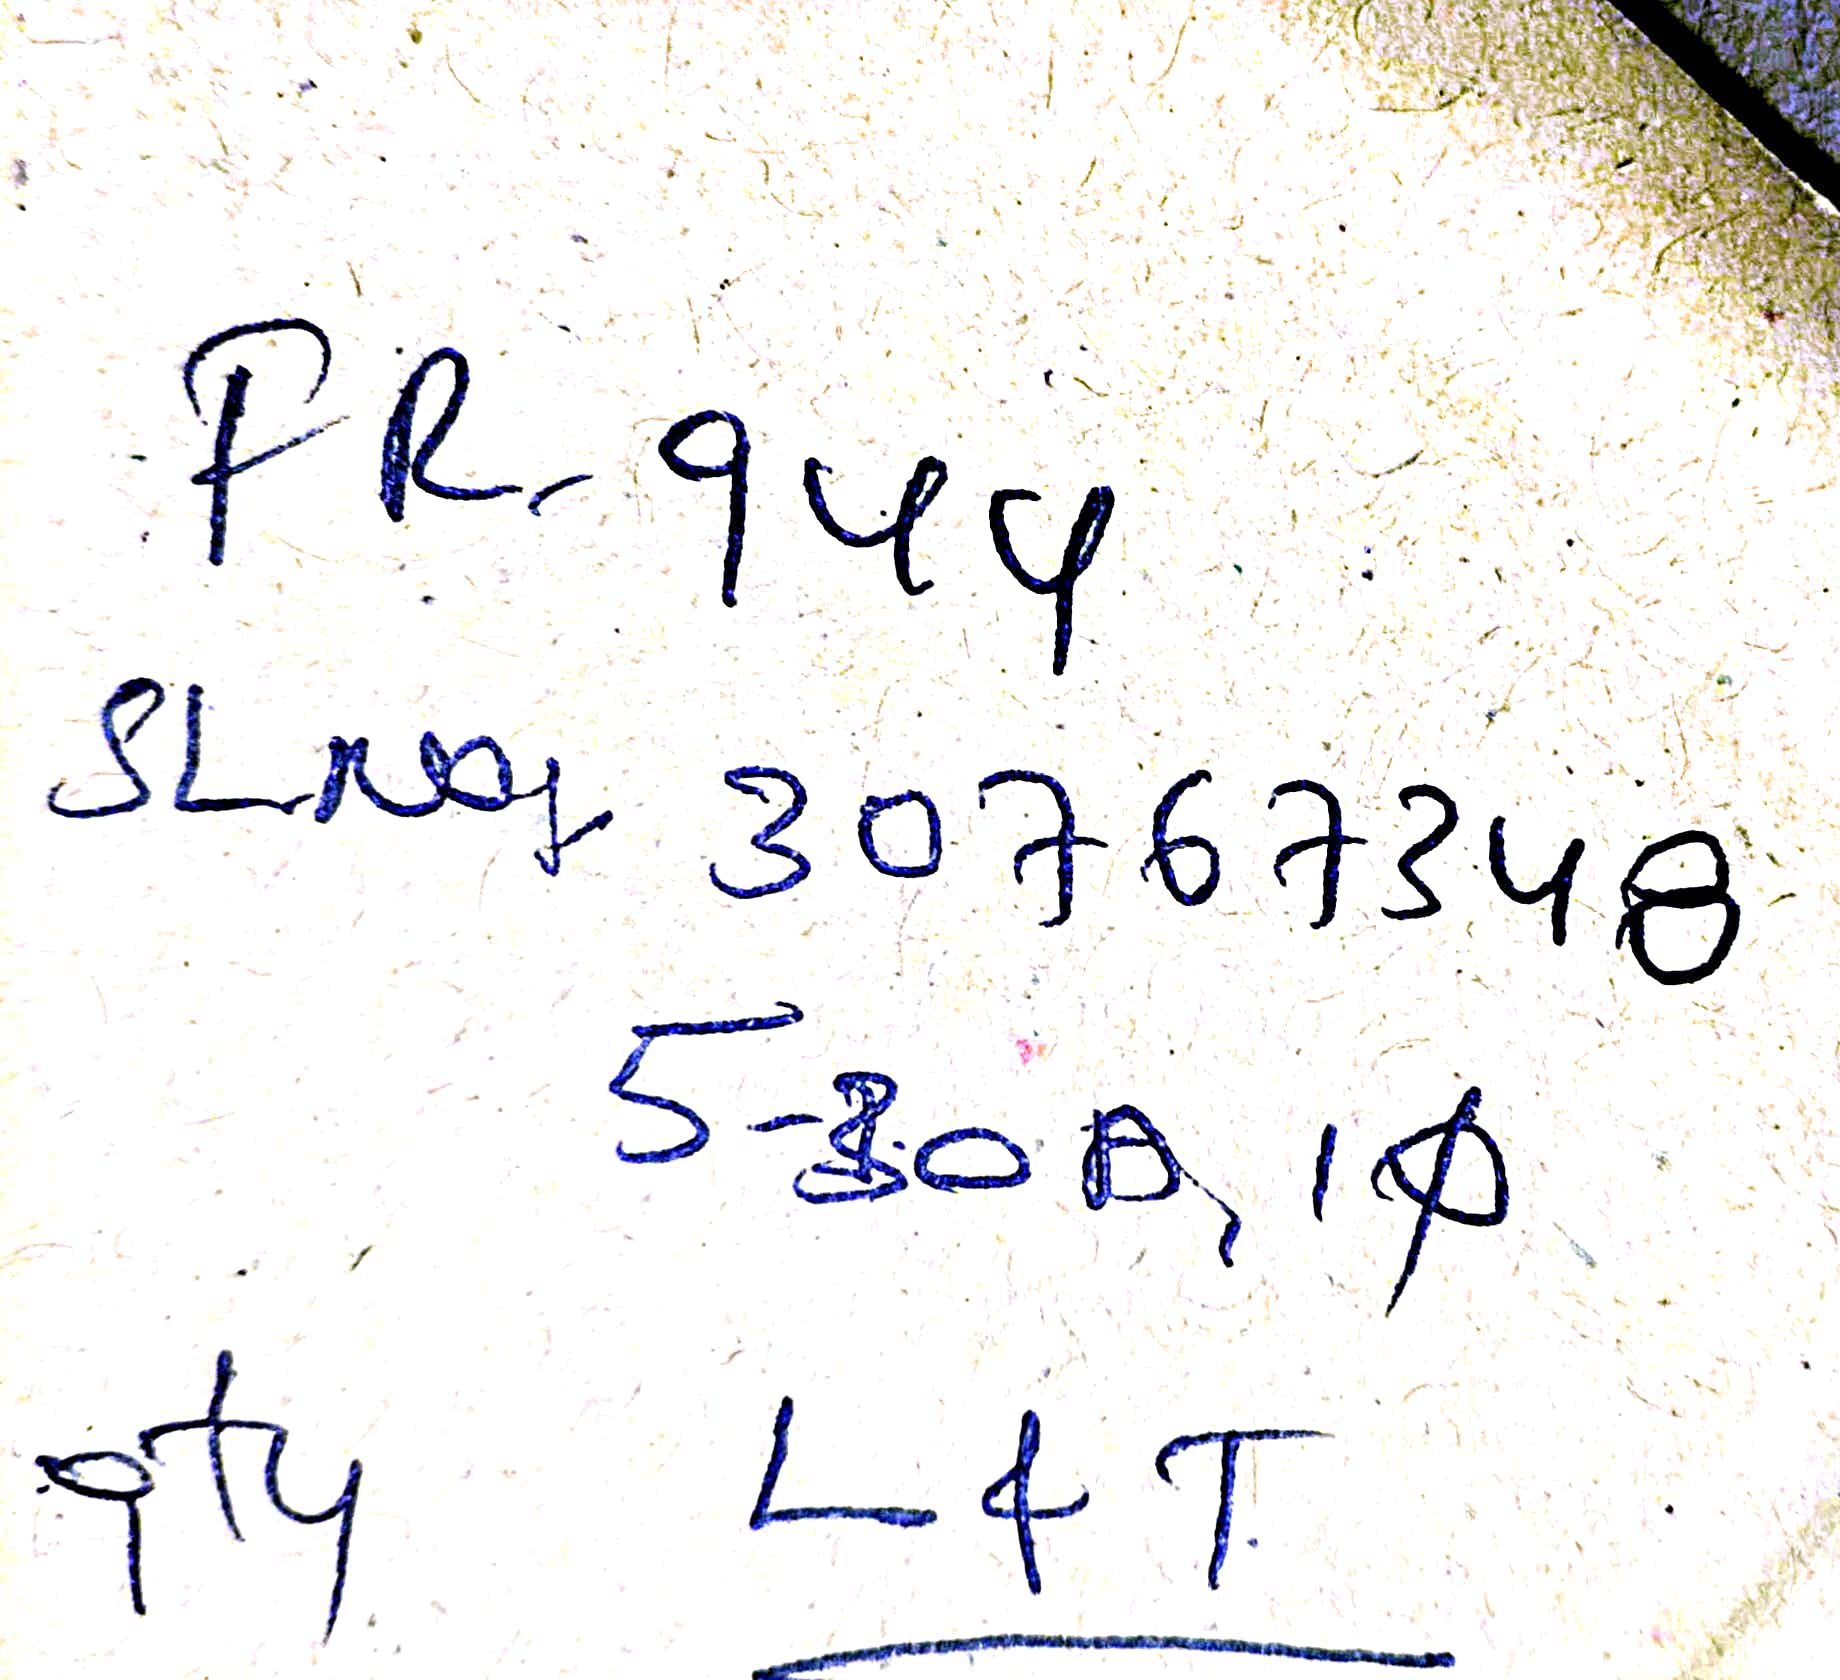 PR-944
SLNo, 30767348
5-30A, 1ϕ
qty L&T